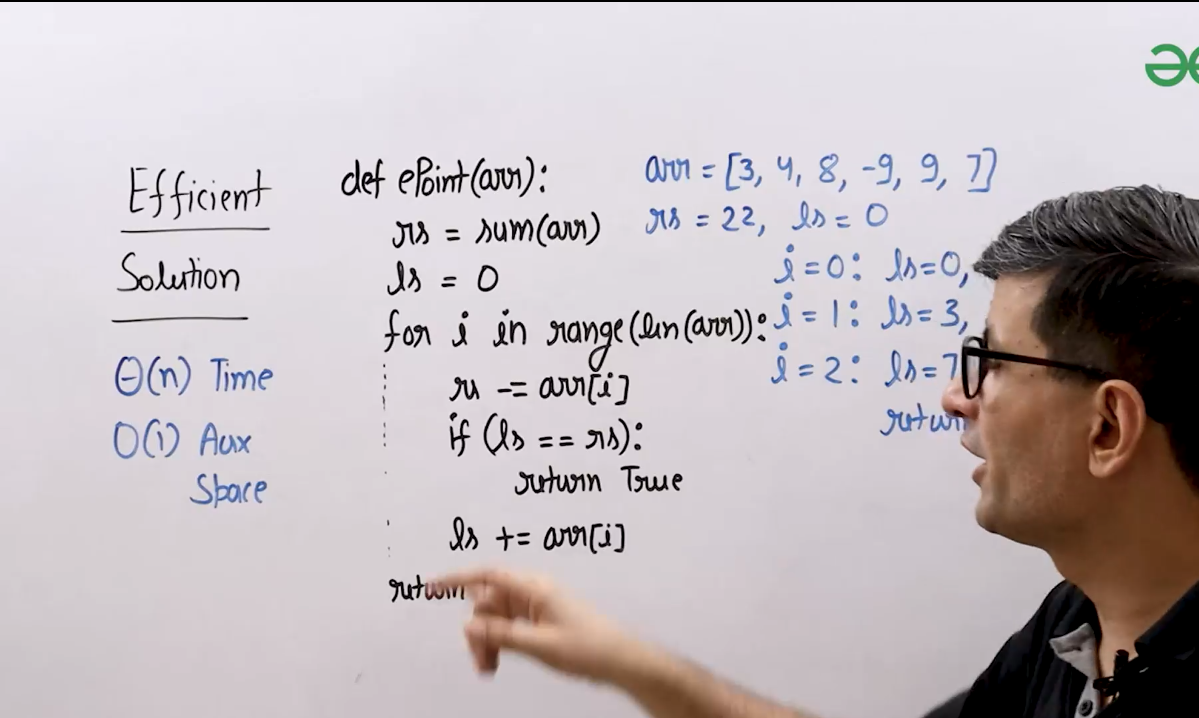 Efficient
Solution
Θ(n) Time
O(1) Aux
Space
def ePoint(arr):
rs = sum(arr)
ls = 0
for i in range(len(arr)):
rs -= arr[i]
if (ls == rs):
return True
ls += arr[i]
return
arr = [3, 4, 8, -9, 9, 7]
rs = 22, ls = 0
i = 0: ls=0,
i = 1: ls = 3,
i = 2: ls=7